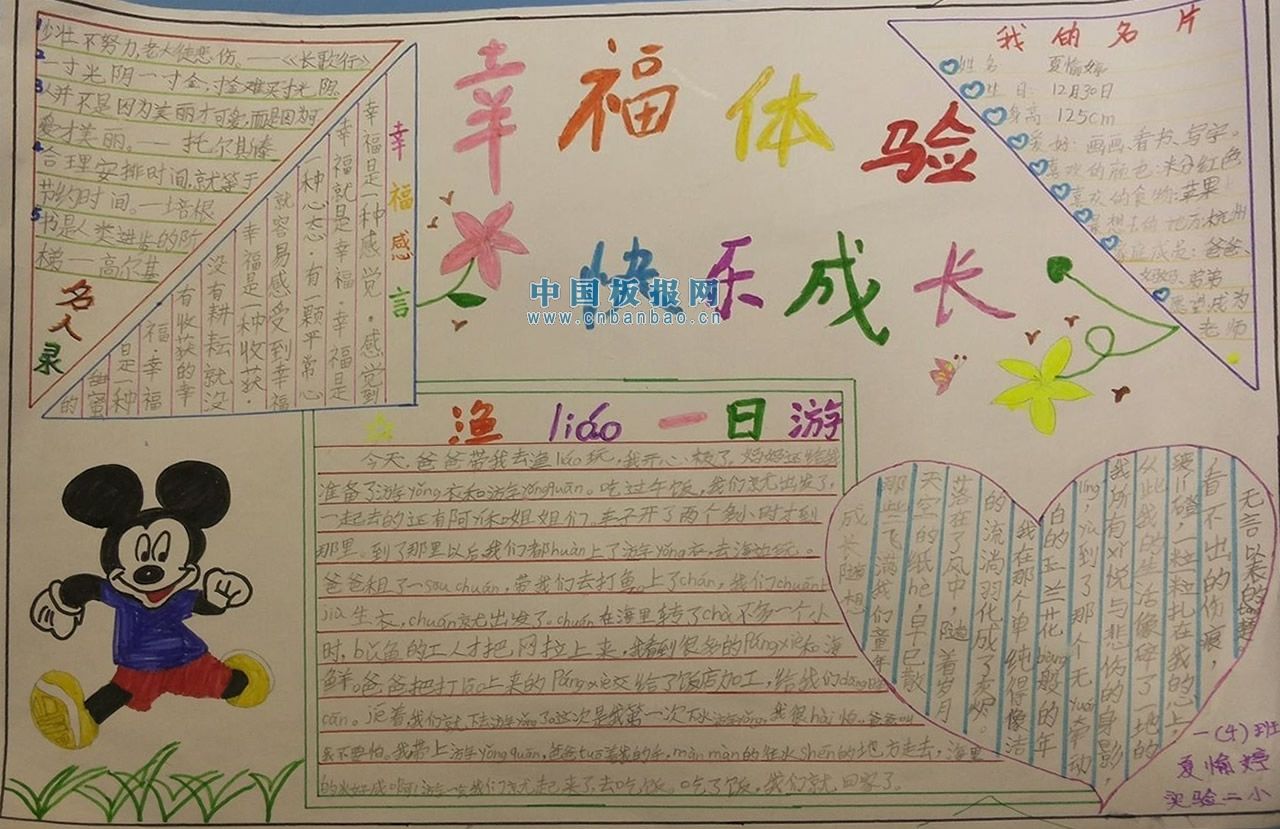 少壮不努力,老大徒悲伤。——《长歌行》
一寸光阴一寸金,寸金难买寸光阴
人并不是因为美丽才可爱,而是因为可
爱才美丽。——托尔斯泰
合理安排时间,就等于
节约时间。——培根
书是人类进步的阶
梯——高尔基
名人录
幸福感言
幸福是一种感觉,感觉到
幸福就是幸福,幸福是
一种心态,有一颗平常心
就容易感受到幸福
幸福是一种收获,
没有耕耘就没
有收获的幸
福,幸福
是一种
的
幸福体验
快乐成长
中国板报网
www.cnbanbao.cn
我的名片
姓名 夏愉婷
生日:12月30日
身高 125cm
爱好:画画、看书、写字。
喜欢的颜色:米分红色
喜欢的食物:苹果
最想去的地方:杭州
家庭成员:爸爸、
妈妈、弟弟
愿望:成为
老师
渔liáo一日游
今天,爸爸带我去渔liáo玩,我开心极了。妈妈还给我
准备了游yǒng衣和游yǒngquān。吃过午饭,我们就出发了,
一起去的还有阿yí和姐姐们,车子开了两个多小时才到
那里。到了那里以后我们都huàn上了游yǒng衣,去海边玩。
爸爸租了一sōu chuán,带我们去打鱼。上了chán,我们chuān上
jiù生衣,chuán就出发了。chuán在海里转了chà不多一个小
时,bǔ鱼的工人才把网拉上来,我看到很多的Páng xiè和海
鲜。爸爸把打lāo上来的Páng xiè交给了饭店加工,给我们dāng
cān。
我不要怕。我带上游yǒng quān,爸爸
的水好咸啊!
起来了,去吃饭。吃了饭,我们就回家了。
无言以来的
看不出的伤痕,
硬,一粒粒扎在我的心上,
从此我的生活像碎了一地的
我所有xǐ悦与悲伤的身影,
到了那个无
我在那个单纯得像洁
白的玉兰花bàng般的年
的流淌羽化成了
落在了风中,随着岁月
天空的纸hè,早已散
那些飞满我们童年
成长随想
一(4)班
夏愉婷
实验二小